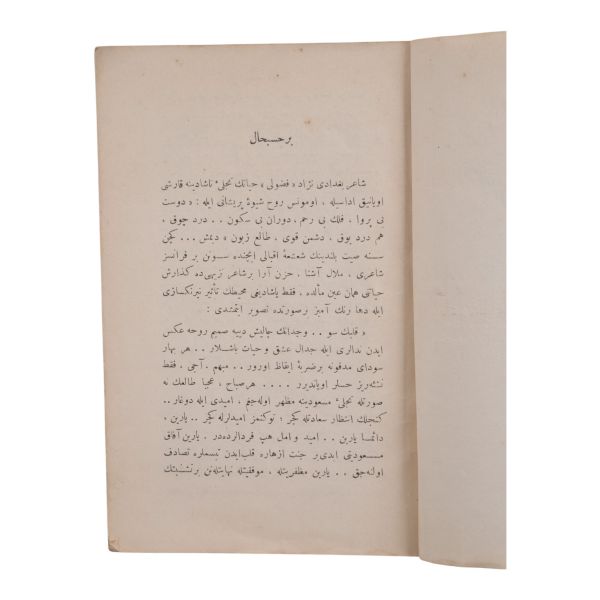 بر حسبحال
شاعر بغدادی نژاد «فضولی» حیاتك تجلیٔ ناشادینه قارشی
اویانیق اداسیله ، اومونس روح شیوهٔ پریشانی ایله : «دوست
بی پروا ، فلك بی رحم ، دوران بی سكون . . درد چوق ،
هم درد یوق ، دشمن قوی ، طالع زبون» دیمش . . . كچن
سنه صیت بلندینك شعشعهٔ اقبالی ایچنده سونن بر فرانسز
شاعری ، ملال آشنا ، حزن آرا بر شاعر نزیهی‌ده كذارش
حیاتی همان عین مآلده ، فقط یاشادیغی محیطك تأثیر نیرنكسازی
ایله دها رنك آمیز بر صورتده تصویر ایتمشدی :
« قلبك سو . . وجدانك چالیش دییه صمیم روحه عكس
ایدن ندالری ایله جدال عشق و حیات باشلار . . هر بهار
سودای مدفونه بر ضربهٔ ایقاظ اورور . . مبهم ، آجی ، فقط
نشئه‌ریز حسلر اویاندیرر . . . . هر صباح ، عجبا طالعك نه
صورتله تجلیٔ مسعودینه مظهر اوله‌جغم ، امیدی ایله دوغار . .
كنجلك انتظار سعادتله كچر ؛ توكنمز امیدلرله كچر . . یارین ،
دائما یارین . . امید و امل هپ فردالرده‌در . یارین آفاق
مسعودیتی ابدی بر جنت ازهاره قلب ایدن تبسملره تصادف
اوله‌جق . . یارین مظفریتله ، موفقیتله نهایتله‌نن بر تشبثك